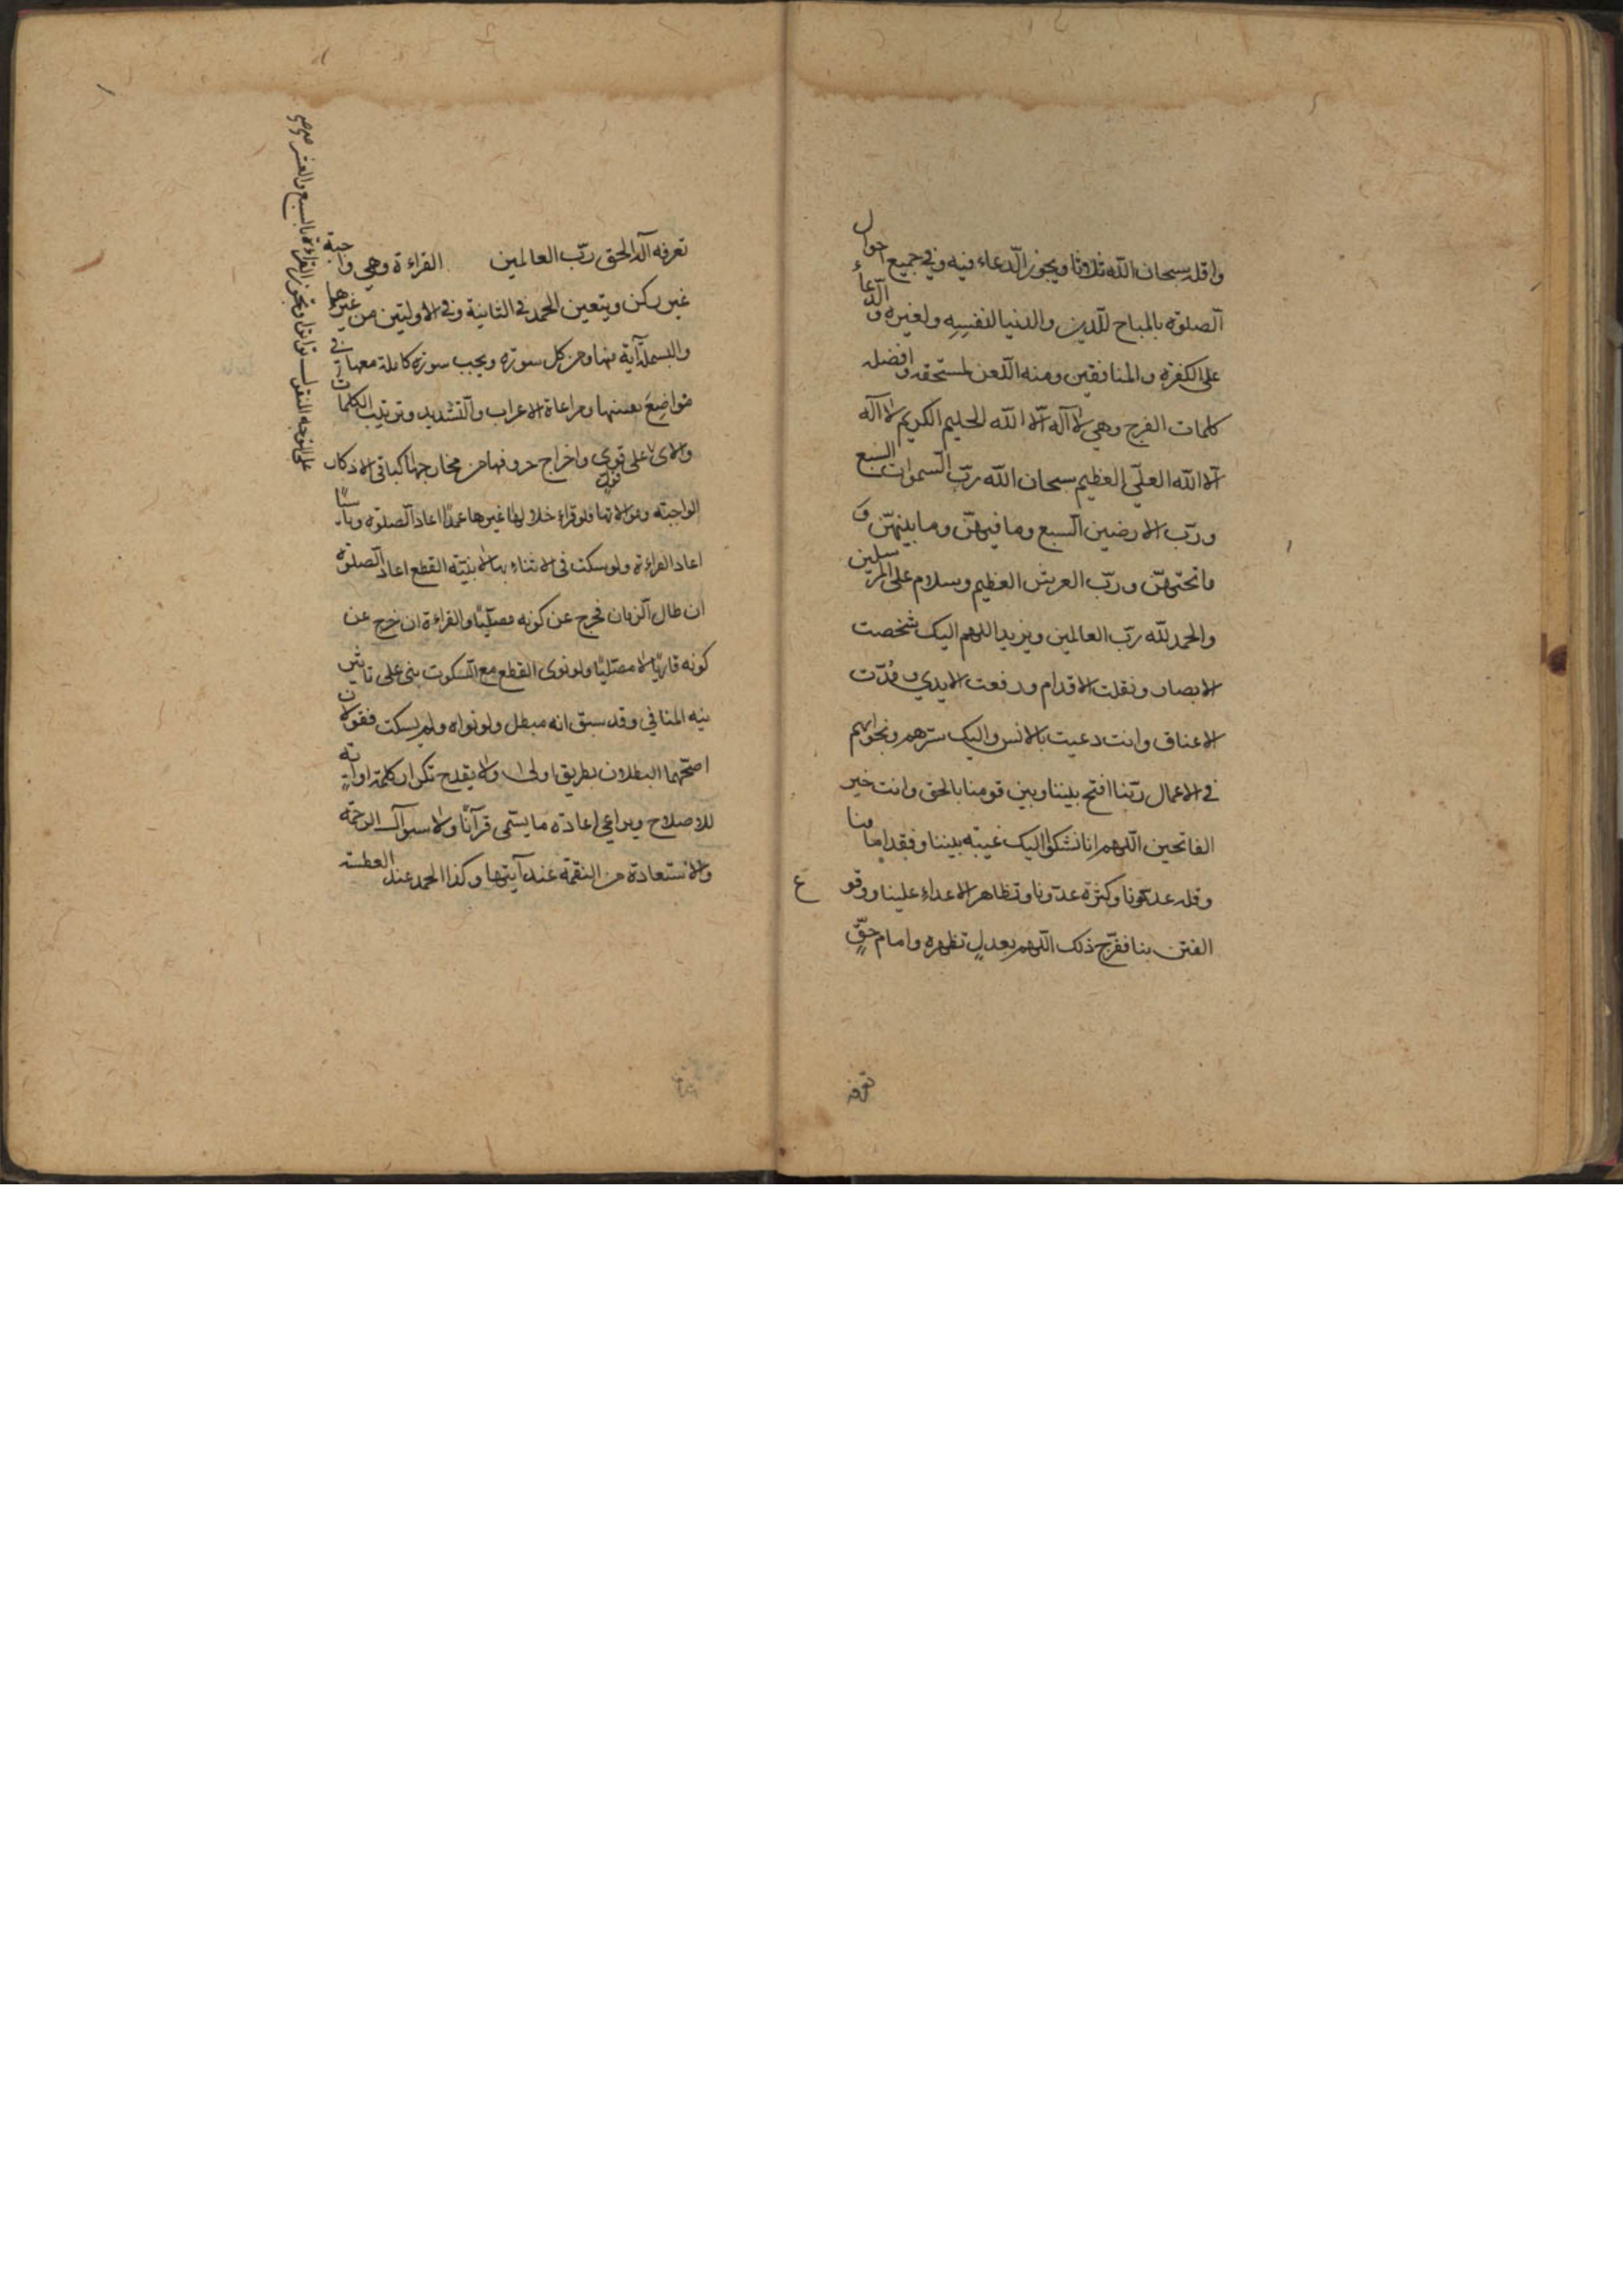 واقله سبحان الله ثلاثا ويجوز الدعاء فيه وفي جميع احوال
الصلوة بالمباح للدين والدنيا لنفسه ولغيره والدعاء
على الكفرة والمنافقين ومنه اللعن لمستحقه وافضله
كلمات الفرج وهي لا آله الا الله الحليم الكريم لا آله
الا الله العلي العظيم سبحان الله رب السموات السبع
ورب الارضين السبع وما فيهن وما بينهن و
ما تحتهن ورب العرش العظيم وسلام على المرسلين
والحمد لله رب العالمين ويزيد اللهم اليك شخصت
الابصار ونقلت الاقدام ورفعت الايدي ومدت
الاعناق وانت دعيت بالالسن واليك سرهم ونجواهم
في الاعمال ربنا افتح بيننا وبين قومنا بالحق وانت خير
الفاتحين اللهم انا نشكو اليك غيبة بيننا وفقد امامنا
وقلة عددنا وكثرة عدونا وتظاهر الاعداء علينا ووقوع
الفتن بنا ففرج ذلك اللهم بعدل تظهره وامام حق
تعرفه
تعرفه اله الحق رب العالمين القراءة وهي واجبة
غير ركن ويتعين الحمد في الثانية وفي الاوليتين من غيرهما
والبسملة آية منها ومن كل سورة ويجب سورة كاملة معها في
مواضع بعينها ومراعاة الاعراب والتشديد وترتيب الكلمات
والآى على قوى واخراج حروفها من مخارجها كباقي الاذكار
الواجبة وموالاتها فلو قراء خلالها غيرها عمدا اعاد الصلوة وناسيا
اعاد القراءة ولو سكت في الاثناء لا بنية القطع اعاد الصلوة
ان طال الزمان فخرج عن كونه مصليا والقراءة ان خرج عن
كونه قاريا لا مصليا ولو نوى القطع مع السكوت بنى على تاثير
نية المنافي وقد سبق انه مبطل ولو نواه ولم يسكت فقولان
اصحهما البطلان بطريق اولى ولا يقدح تكرار كلمة او آية
للاصلاح ويراعي اعادة ما يسمى قرآنا ولا سؤال الرحمة
والاستعاذة من النقمة عند آيتها وكذا الحمد عند العطسة
وتجوز القراءة بالسبع والعشر